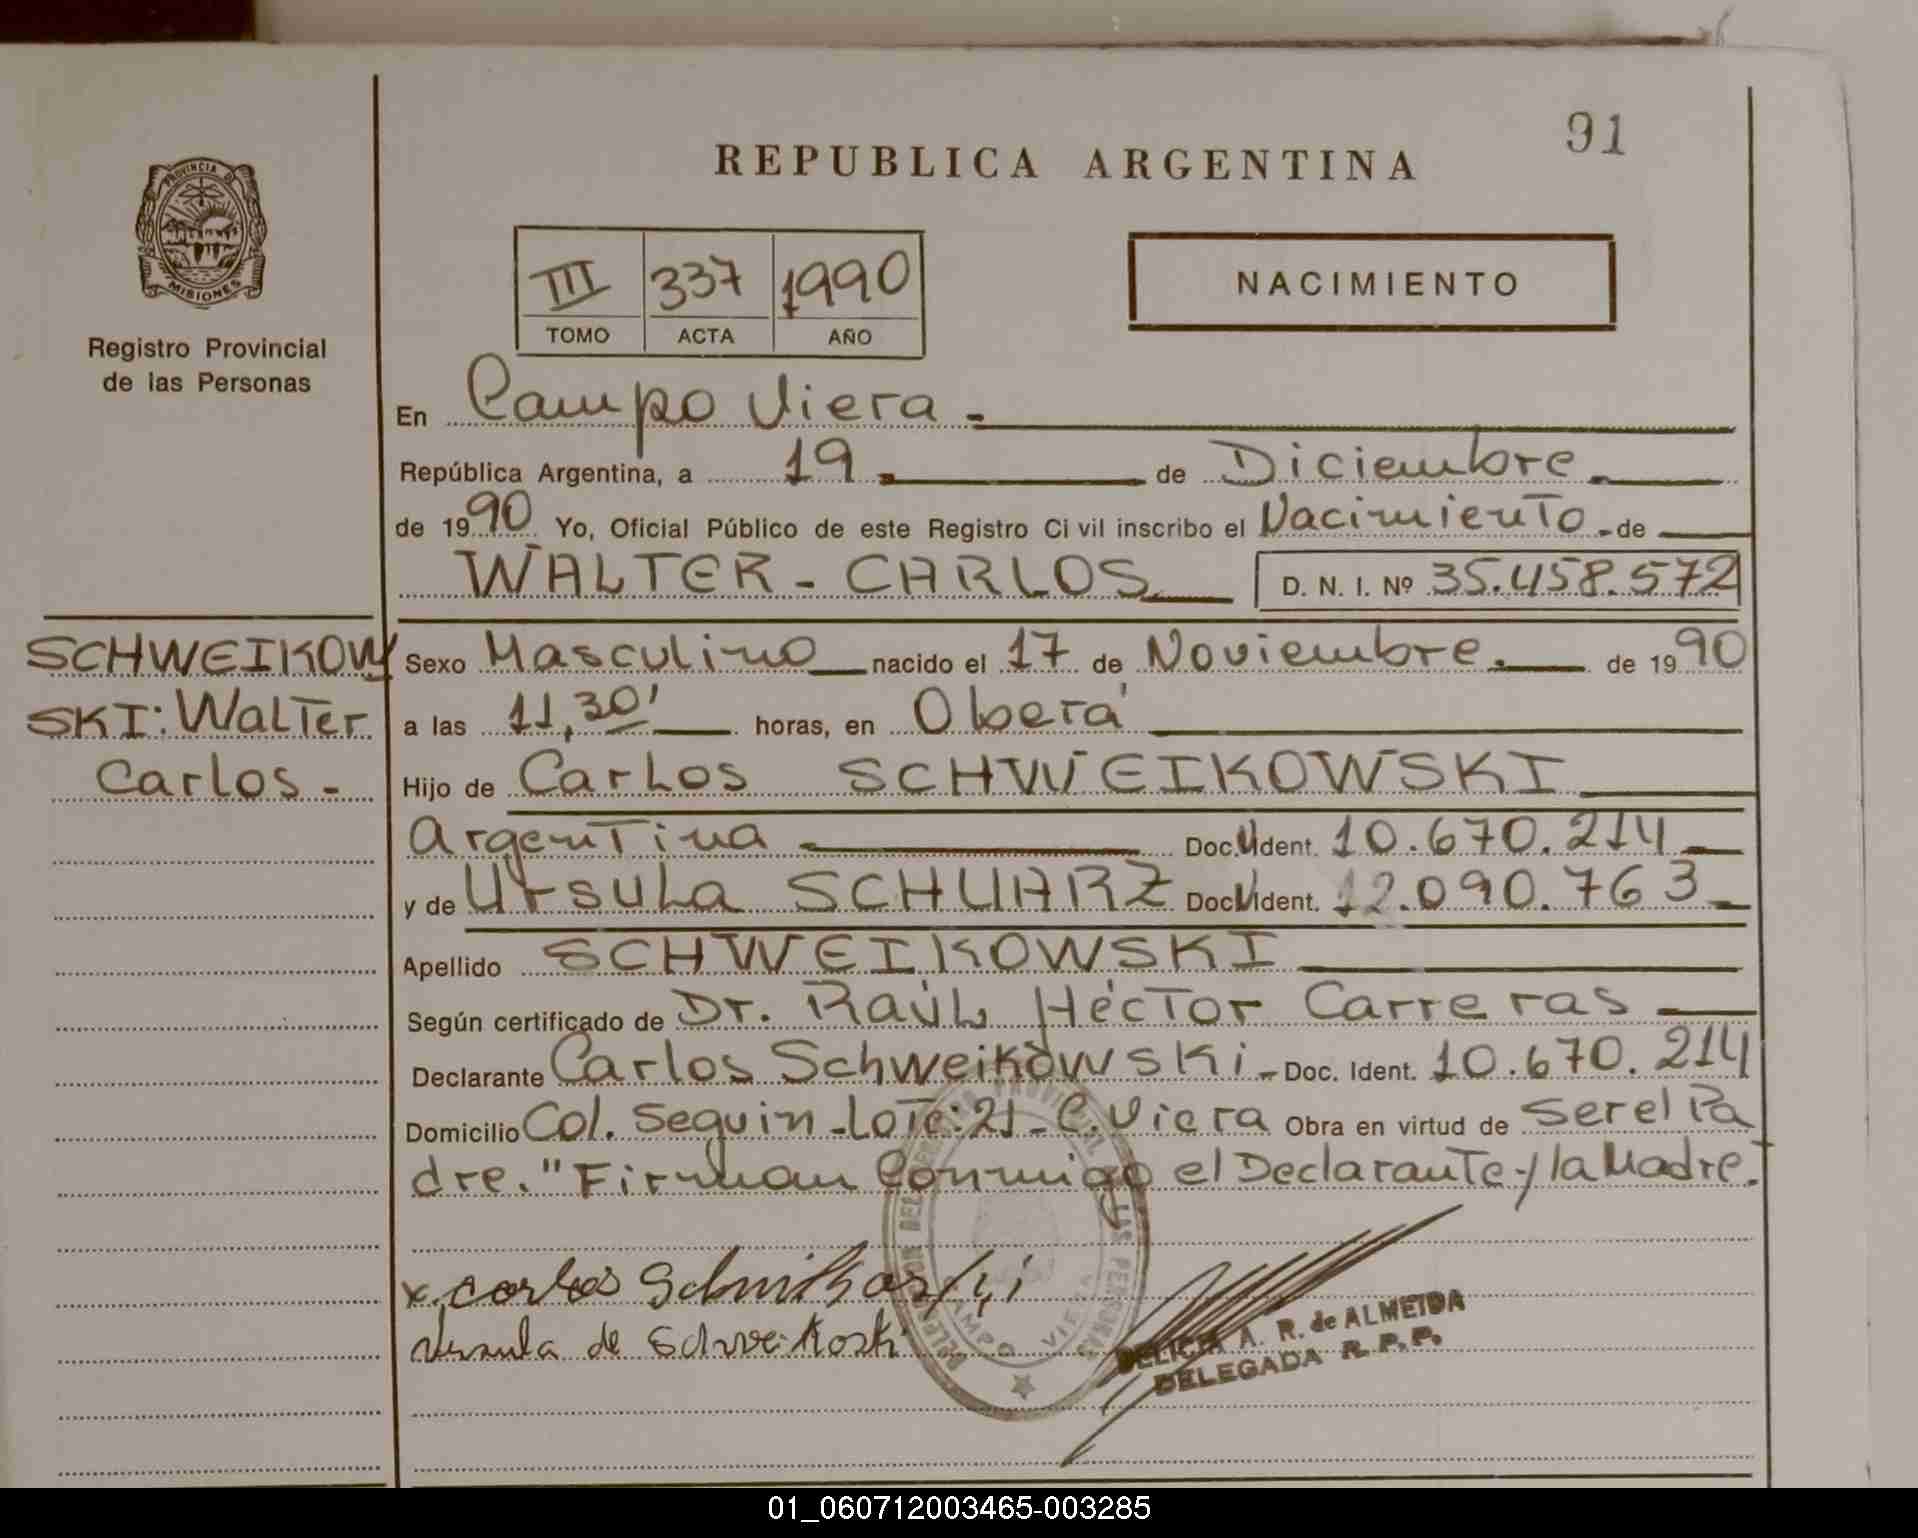 91
REPUBLICA ARGENTINA
PROVINCIA DE
MISIONES
Registro Provincial
de las Personas
III 337 1990
TOMO ACTA AÑO
NACIMIENTO
En Campo Viera.
República Argentina, a 19. de Diciembre.
de 1990 Yo, Oficial Público de este Registro Civil inscribo el Nacimiento. de
WALTER - CARLOS D. N. I. Nº 35.458.572
SCHWEIKOW
SKI: Walter
Carlos.-
Sexo Masculino nacido el 17 de Noviembre. de 1990
a las 11,30' horas, en Oberá
Hijo de Carlos SCHWEIKOWSKI
Argentina Doc. Ident. 10.670.214
y de Ursula SCHUARZ Doc. Ident. 12.090.763
Apellido SCHWEIKOWSKI
Según certificado de Dr. Raúl Héctor Carreras
Declarante Carlos Schweikowski - Doc. Ident. 10.670.214
Domicilio Col. Seguin - Lote: 21 - C. Viera Obra en virtud de Ser el Pa
dre. "Firman Conmigo el Declarante y la Madre.
x. carlos
Ursula de
CAMPO VIERA
DELICIA A. R. de ALMEIDA
DELEGADA R. P. P.
01_060712003465-003285